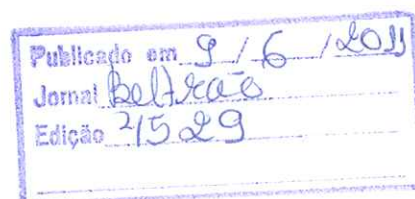 Publicado em 9 / 6 / 2011
Jornal Beltrão
Edição 4529